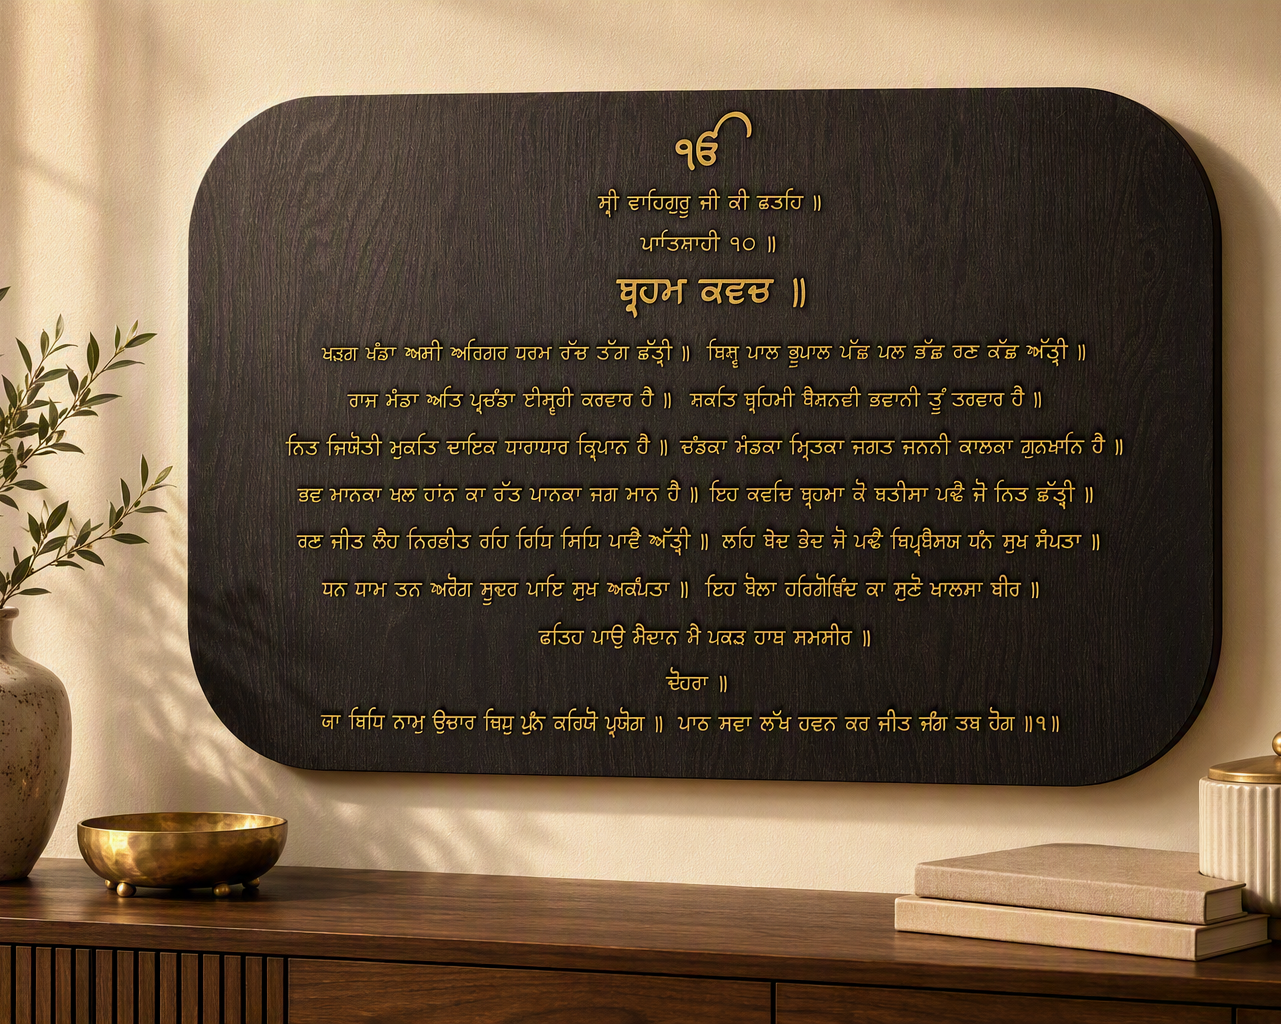 ੴ
ਸ੍ਰੀ ਵਾਹਿਗੁਰੂ ਜੀ ਕੀ ਛਤਹਿ ॥
ਪਾਤਿਸ਼ਾਹੀ ੧੦ ॥
ਬ੍ਰਹਮ ਕਵਚ ॥
ਖੜਗ ਖੰਡਾ ਅਸੀ ਅਰਿਗਰ ਧਰਮ ਰੱਚ ਤੱਗ ਛੱਤ੍ਰੀ ॥ ਬਿਸ੍ਵ ਪਾਲ ਭੂਪਾਲ ਪੱਛ ਪਲ ਭੱਛ ਰਣ ਕੱਛ ਅੱਤ੍ਰੀ ॥
ਰਾਜ ਮੰਡਾ ਅਤਿ ਪ੍ਰਚੰਡਾ ਈਸ੍ਵਰੀ ਕਰਵਾਰ ਹੈ ॥ ਸ਼ਕਤਿ ਬ੍ਰਹਿਮੀ ਬੈਸ਼ਨਵੀ ਭਵਾਨੀ ਤੂੰ ਤਰਵਾਰ ਹੈ ॥
ਨਿਤ ਜਿਯੋਤੀ ਮੁਕਤਿ ਦਾਇਕ ਧਾਰਾਧਾਰ ਕ੍ਰਿਪਾਨ ਹੈ ॥ ਚੰਡਕਾ ਮੰਡਕਾ ਮ੍ਰਿਤਕਾ ਜਗਤ ਜਨਨੀ ਕਾਲਕਾ ਗੁਨਖਾਨਿ ਹੈ ॥
ਭਵ ਮਾਨਕਾ ਖਲ ਹਾਂਨ ਕਾ ਰੱਤ ਪਾਨਕਾ ਜਗ ਮਾਨ ਹੈ ॥ ਇਹ ਕਵਚਿ ਬ੍ਰਹਮਾ ਕੋ ਬਤੀਸਾ ਪਢੈ ਜੋ ਨਿਤ ਛੱਤ੍ਰੀ ॥
ਰਣ ਜੀਤ ਲੈਹ ਨਿਰਭੀਤ ਰਹਿ ਰਿਧਿ ਸਿਧਿ ਪਾਵੈ ਅੱਤ੍ਰੀ ॥ ਲਹਿ ਬੇਦ ਭੇਦ ਜੋ ਪਢੈ ਬਿਪ੍ਰਬੈਸਯ ਧੰਨ ਸੁਖ ਸੰਪਤਾ ॥
ਧਨ ਧਾਮ ਤਨ ਅਰੋਗ ਸੂਦਰ ਪਾਇ ਸੁਖ ਅਕੰਪਤਾ ॥ ਇਹ ਬੋਲਾ ਹਰਿਗੋਬਿੰਦ ਕਾ ਸੁਣੋ ਖਾਲਸਾ ਬੀਰ ॥
ਫਤਿਹ ਪਾਉ ਮੈਦਾਨ ਮੈ ਪਕੜ ਹਾਥ ਸਮਸੀਰ ॥
ਦੋਹਰਾ ॥
ਯਾ ਬਿਧਿ ਨਾਮੁ ਉਚਾਰ ਬਿਧੁ ਪੁੰਨ ਕਰਿਯੋ ਪ੍ਰਯੋਗ ॥ ਪਾਠ ਸਵਾ ਲੱਖ ਹਵਨ ਕਰ ਜੀਤ ਜੰਗ ਤਬ ਹੋਗ ॥੧॥